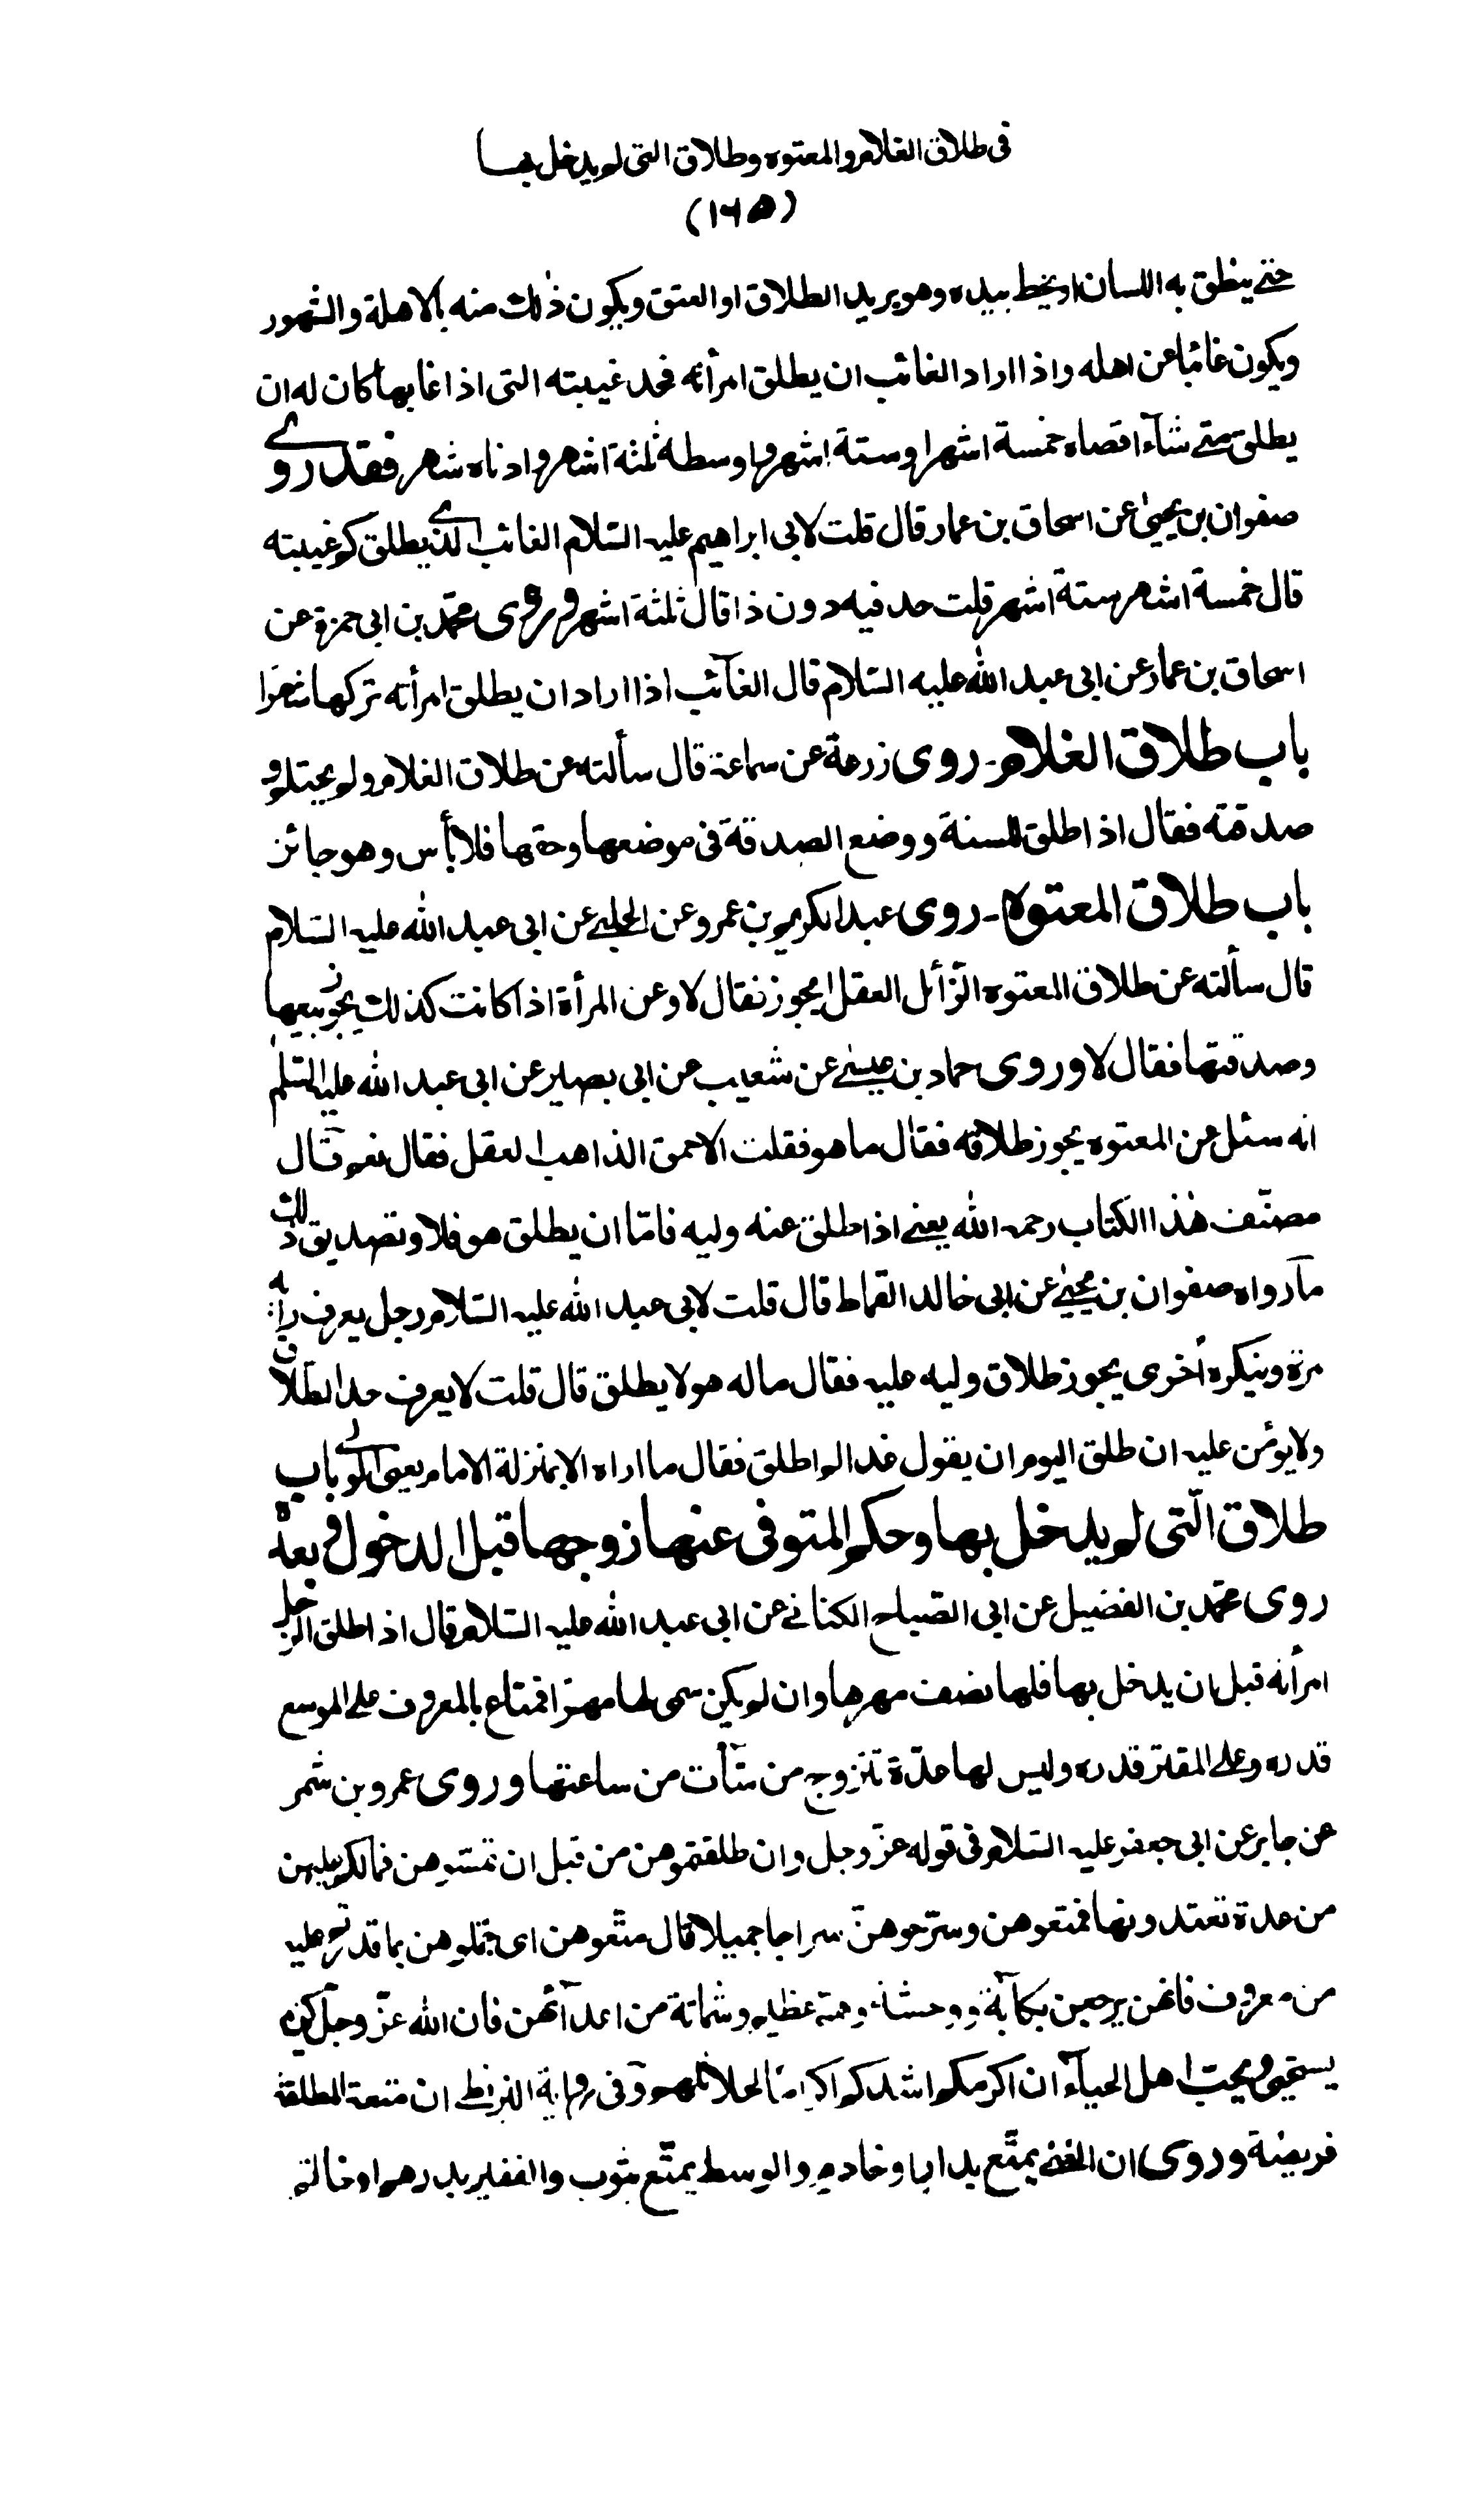 فى طلاق الغلام والمعتوه وطلاق التى لم يدخل بها
(١٦٥)
حتے ينطق به اللسان او يخط بيده وهو يريد الطلاق او العتق ويكون ذٰلك منه بالاهلة والشهور
ويكون غائبا عن اهله واذا اراد الغائب ان يطلق امرأته فحد غيبته التى اذا غابها كان له ان
يطلق متے شآء اقصاه خمسة اشهر او ستة اشهر واوسطه ثلثة اشهر وادناه شهر فقد روے
صفوان بن يحيىٰ عن اسحاق بن عمار قال قلت لابى ابراهيم عليه السّلام الغائب الذے يطلق كم غيبته
قال خمسة اشهر ستة اشهر قلت حد فيه دون ذا قال ثلثة اشهر وروى محمّد بن ابى حمزة عن
اسحاق بن عمار عن ابى عبد الله عليه السّلام قال الغآئب اذا اراد ان يطلق امرأته تركها شهرًا
باب طلاق الغلام۔ روى زرعة عن سماعة قال سألته عن طلاق الغلام ولم يحتلم و
صدقته فقال اذا طلق للسنة ووضع الصدقة فى موضعها وحقها فلا بأس وهو جائز
باب طلاق المعتوه۔ روى عبد الكريم بن عمرو عن الحلبے عن ابى عبد الله عليه السّلام
قال سألته عن طلاق المعتوه الزّائل العقل ايجوز فقال لا وعن المرأة اذا كانت كذلك يجوز بيعها
وصدقتها فقال لا وروى حماد بن عيسىٰ عن شعيب عن ابى بصير عن ابى عبد الله عليه السّلم
انه سئل عن المعتوه يجوز طلاقه فقال ما هو فقلت الاحمق الذاهب العقل فقال نعم قال
مصنّف هٰذا الكتاب رحمه الله يعنے اذا طلق عنه وليه فامّا ان يطلق هو فلا وتصديق ذلك
مآ رواه صفوان بن يحيىٰ عن ابى خالد القماط قال قلت لابى عبد الله عليه السّلام رجل يعرف رأيه
مرّة وينكره أخرى يجوز طلاق وليه عليه فقال ما له هو لا يطلق قال قلت لا يعرف حد الطّلاق
ولا يؤمن عليه ان طلق اليوم ان يقول غدا لم اطلق فقال ما اراه الا بمنزلة الامام يعنى الولى باب
طلاق الّتى لم يدخل بها وحكم المتوفى عنها زوجها قبل الدخول وبعده
روى محمّد بن الفضيل عن ابى الصّباح الكنانے عن ابى عبد الله عليه السّلام قال اذا طلق الرجل
امرأته قبل ان يدخل بها فلها نصف مهرها وان لم يكن سمى لها مهرًا فمتاع بالمعروف على الموسع
قدره وعلى المقتر قدره وليس لها عدّة تتزوج من شآءت من ساعتها وروى عمرو بن شمر
عن جابر عن ابى جعفر عليه السّلام فى قوله عزّ وجل وان طلقتموهن من قبل ان تمسّوهن فما لكم عليهن
من عدة تعتدونها فمتعوهن وسرّحوهنّ سراحا جميلا قال متّعوهن اى جمّلوهن بما قدرتم عليه
من معروف فانهن يرجعن بكآبة ووحشة وهمّ عظيم وشماتة من اعدآئهن فان الله عزّ وجلّ كريم
يستحيى ويحبّ اهل الحياء ان اكرمكم اشدكم اكرامًا لحلائلهم وفى رواية البزنطى ان متعة المطلقة
فريضة وروى ان الغنے يمتّع بدار او خادم والوسط يمتّع بثوب والفقير بدرهم او خاتم